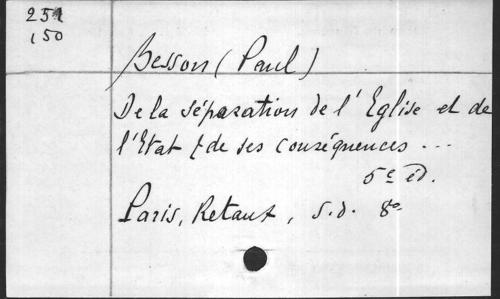 251
150
Besson (Paul)
De la séparation de l'Eglise et de
l'Etat & de ses conséquences ...
5e éd.
Paris, Retaux, s.d. 8o